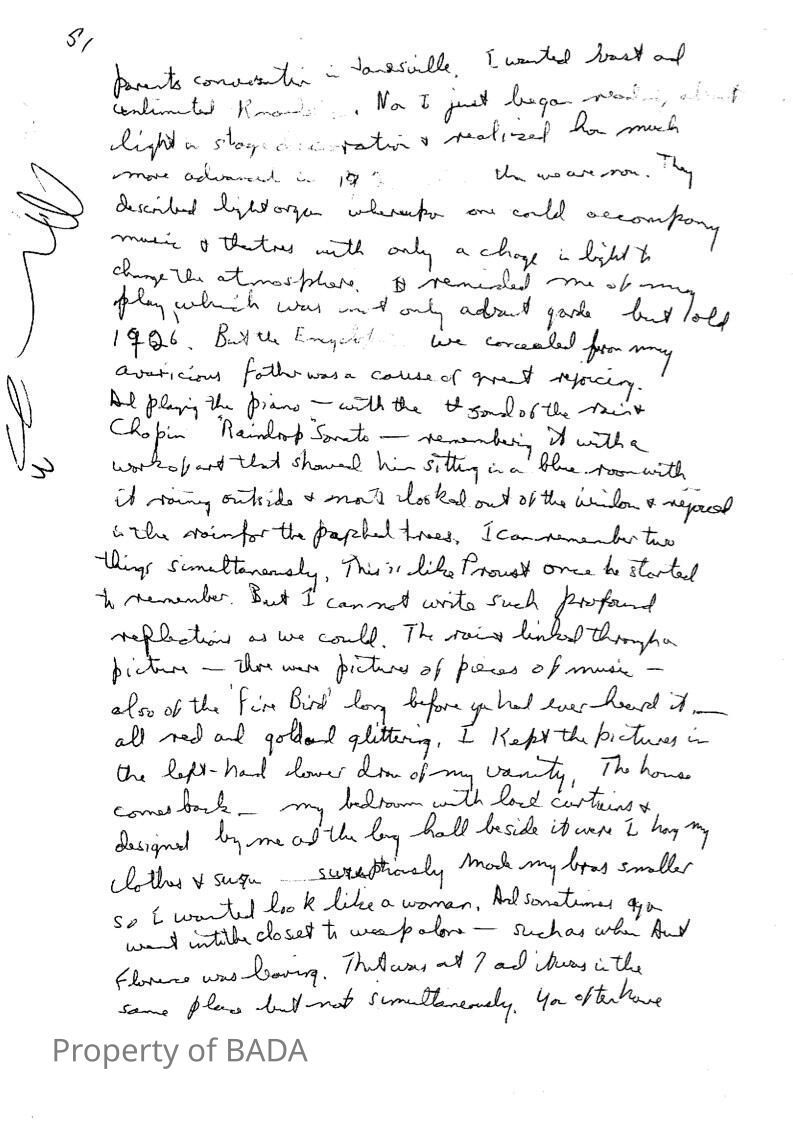 51
parents conversation in Janesville. I wanted vast and
unlimited . No I just began reading about
light in stage & realized how much
more advanced in 19 than we are now. They
described light organ whereupon one could accompany
music & theatres with only a change in light to
change the atmosphere. It reminded me of my
play, which was not only advant garde but told
1926. But the we concealed from my
avaricious father was a cause of great rejoicing.
And playing the piano — with the sound of the rain &
Chopin "Raindrop" Sonata — remembering it with a
work of art that showed him sitting in a blue room with
it raining outside & looked out of the window & rejoiced
in the rain for the parched trees. I can remember two
things simultaneously. This is like Proust once he started
to remember. But I can not write such profound
reflections as we could. The rain is linked through a
picture — there were pictures of pieces of music —
also of the 'Fire Bird' long before you had ever heard it —
all red and gold and glittering. I kept the pictures in
the left-hand lower draw of my vanity. The house
comes back — my bedroom with curtains &
designed by me and the long hall beside it were I hung my
clothes & surreptitiously made my bras smaller
so I wanted look like a woman. And sometimes
went into the closet to weep alone — such as when Aunt
Florence was leaving. That was at 7 and it was in the
same place but not simultaneously. You often have
Property of BADA